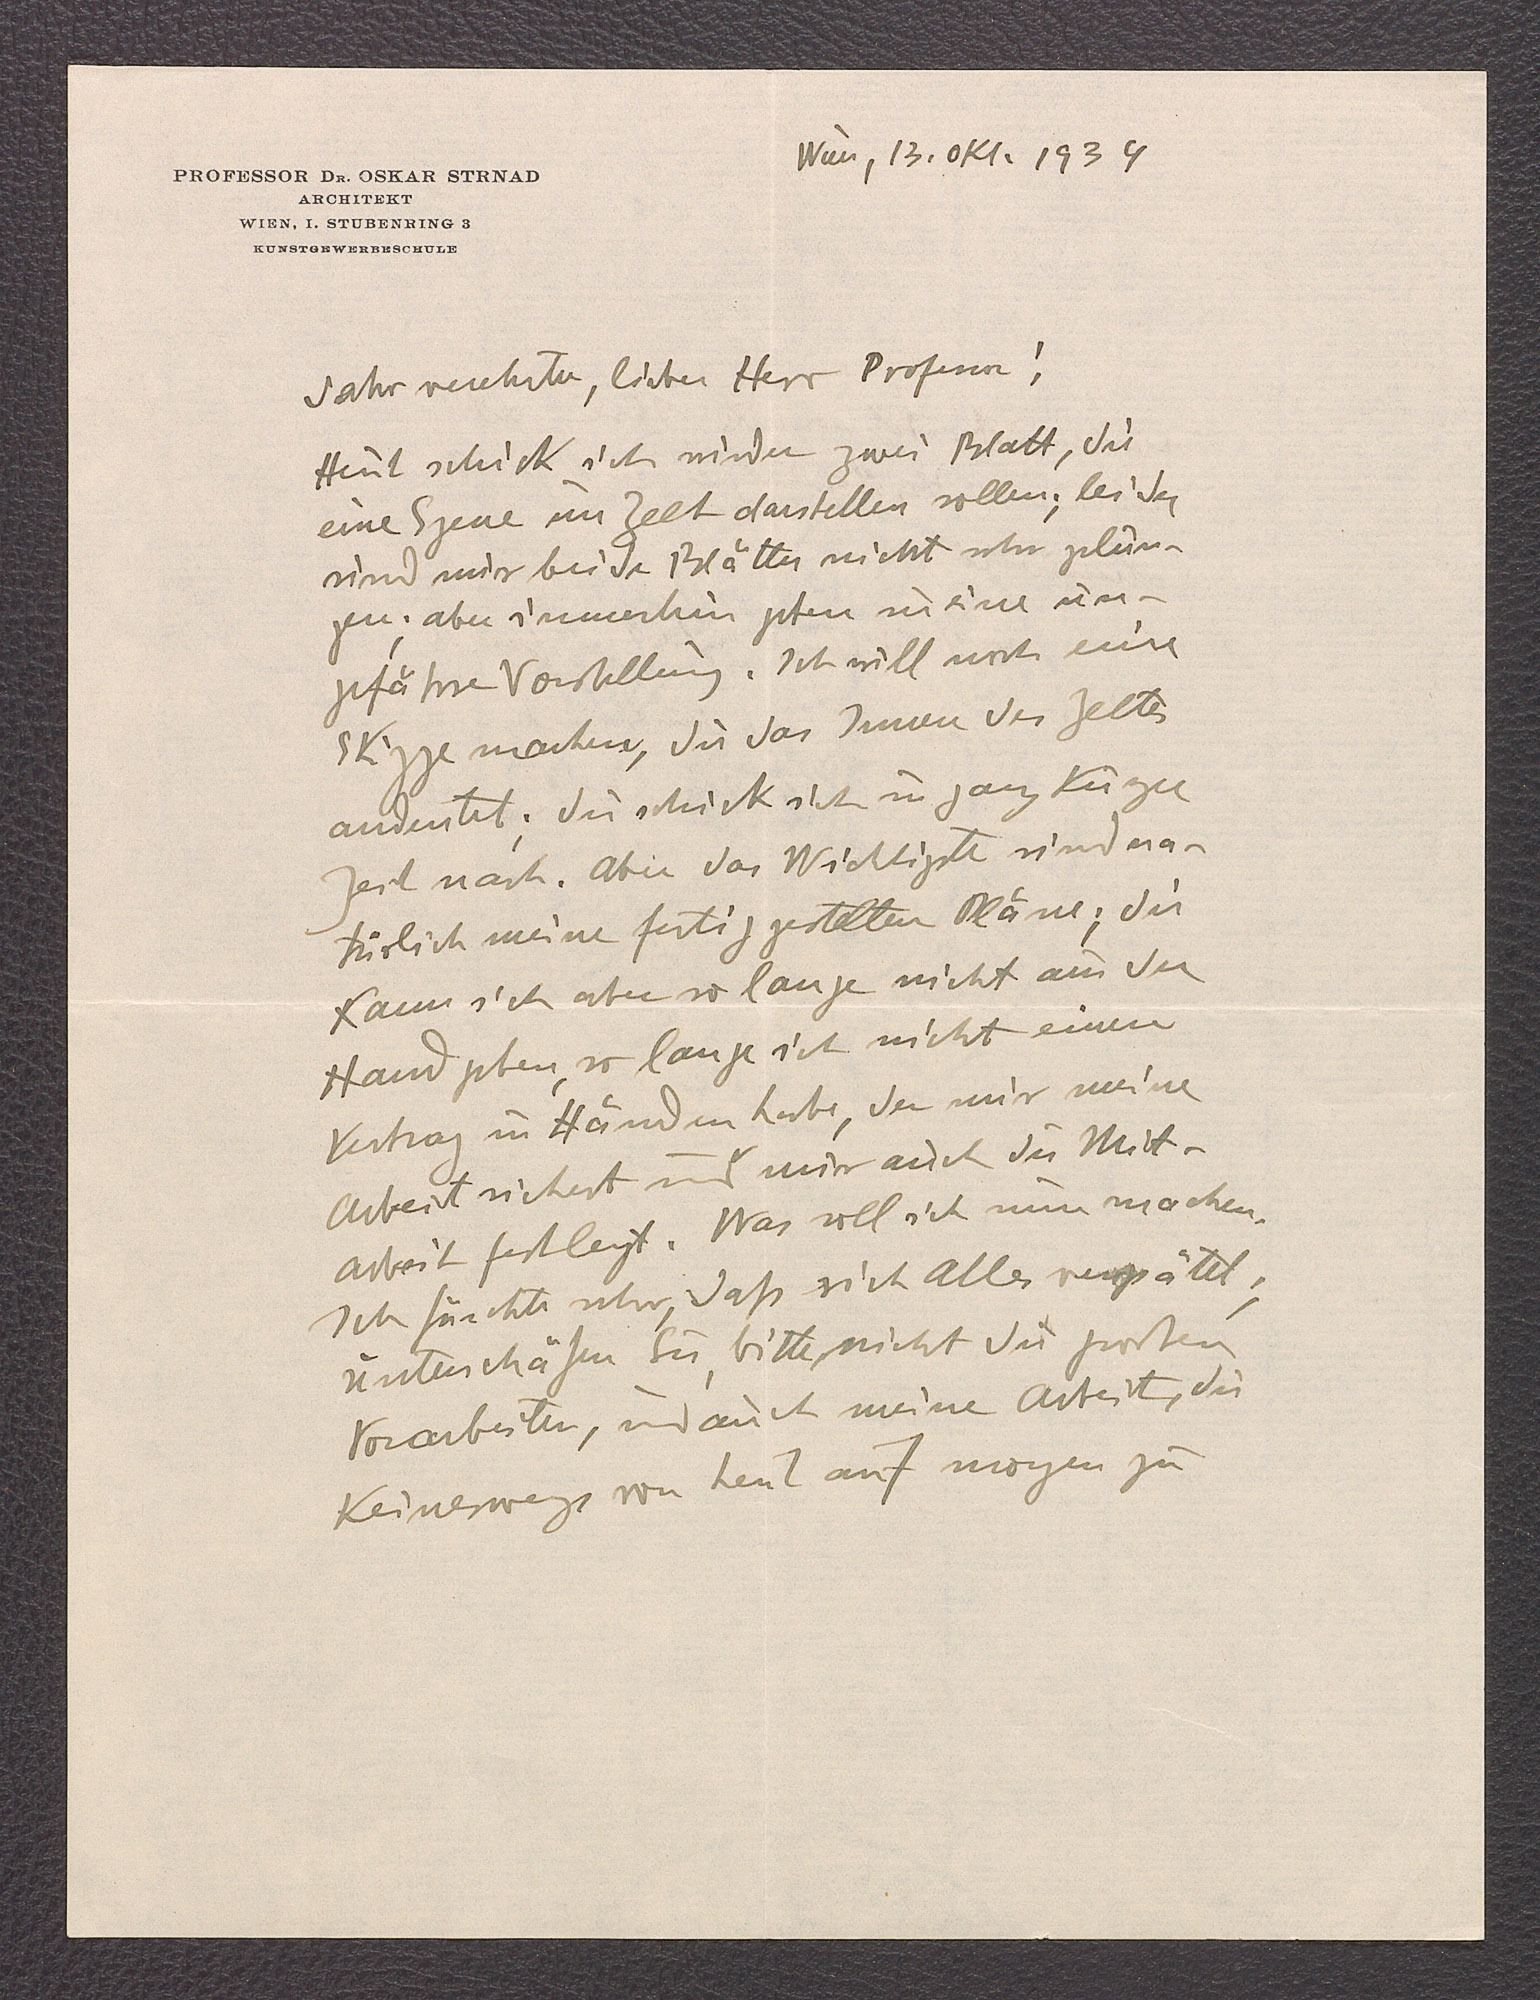 PROFESSOR DR. OSKAR STRNAD
ARCHITEKT
WIEN, I. STUBENRING 3
KUNSTGEWERBESCHULE
Wien, 13. Okt. 1934
Sehr verehrter, lieber Herr Professor!
Heut schick ich wieder zwei Blatt, die
eine Szene im Zelt darstellen sollen; leider
sind mir beide Blätter nicht sehr gelun-
gen; aber immerhin geben sie eine un-
gefähre Vorstellung. Ich will noch eine
Skizze machen, die das Innere des Zeltes
andeutet; die schick ich in ganz kurzer
Zeit nach. Aber das Wichtigste sind na-
türlich meine fertiggestellten Pläne; die
kann ich aber so lange nicht aus der
Hand geben, so lange ich nicht einen
Vertrag in Händen habe, der mir meine
Arbeit sichert und mir auch die Mit-
arbeit festlegt. Was soll ich nun machen.
Ich fürchte sehr, daß sich Alles verspätet;
unterschätzen Sie, bitte, nicht die großen
Vorarbeiten, und auch meine Arbeit, die
keineswegs von heut auf morgen zu